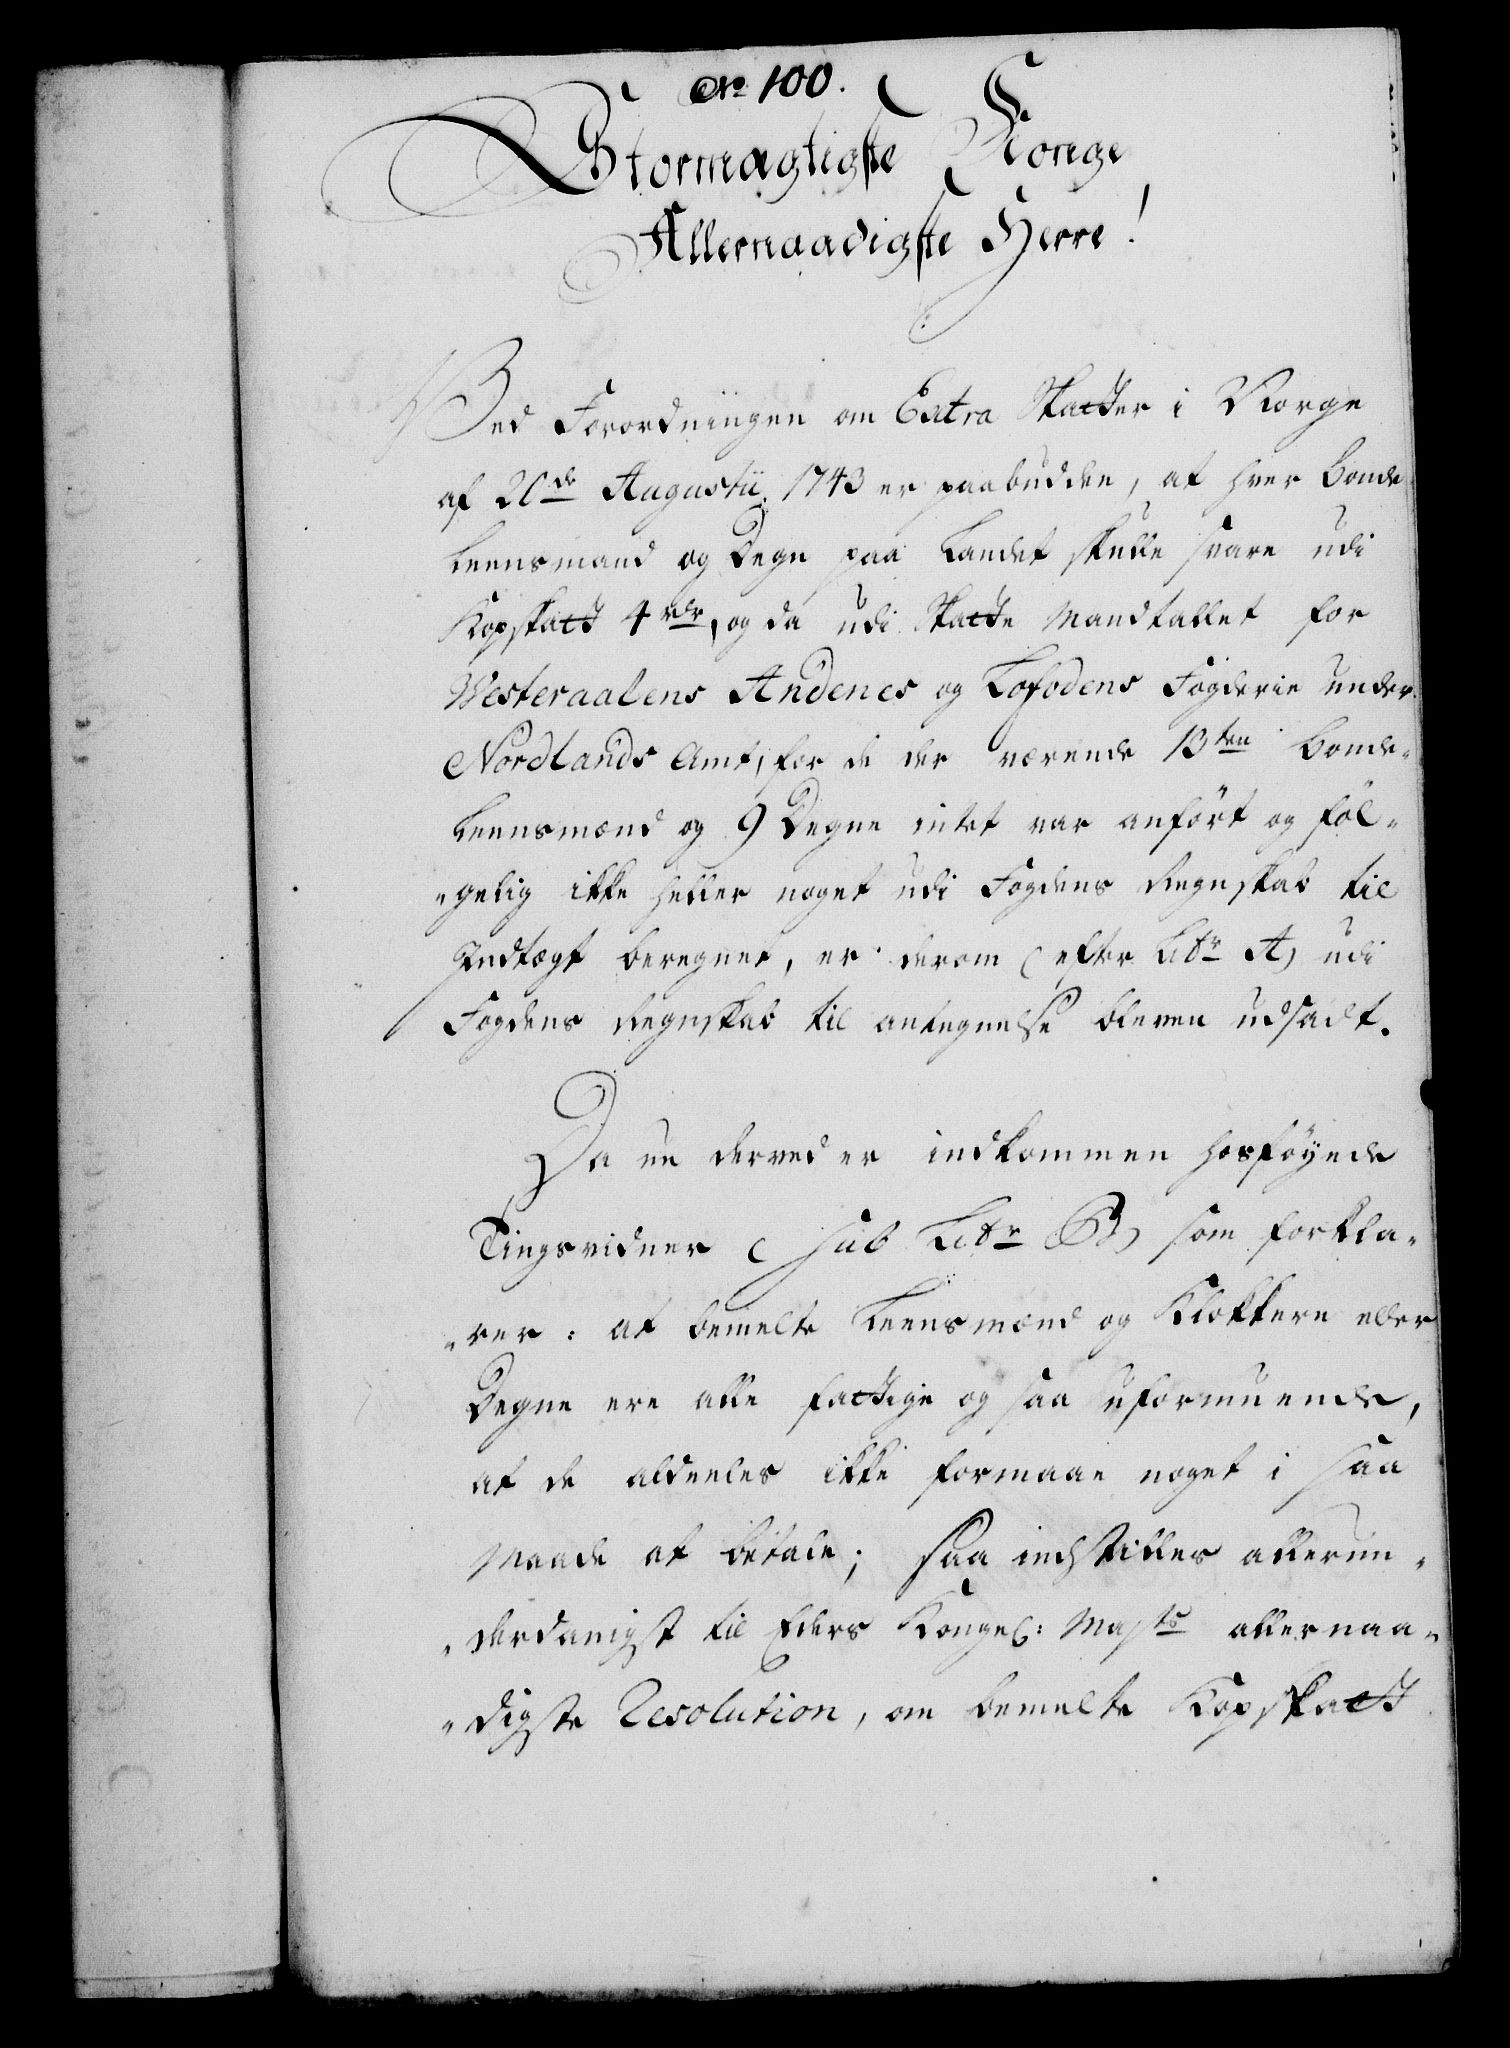 No 100.
Stormægtigste Konge
Allernaadigste Herre!
Ved Forordningen om Extra Skatter i Norge
af 20de Augustii 1743 er paabudden, at hver Bonde
Leensmand og Degn paa Landet skulle svare udi
Kopskatt 4 rdr, og da udi Skatte Mandtallet for
Westeraalens Andenes og Lofodens Fogderie under
Nordlands Amt, for de der værende 13ten Bonde-
Leensmænd og 9 Degne intet var anført og føl-
-gelig ikke heller noget udi Fogdens Regnskab til
Indtægt beregnet, er derom (efter Litr A) udi
Fogdens Regnskab til antegnelse bleven udsadt.
Da nu derved er indkommen hosføyede
Tingsvidner (sub Litr B) som forkla-
-rer: at bemelte Leensmænd og Klokkere eller
Degne ere alle fattige og saa uformuende,
at de aldeeles ikke formaae noget i saa
Maade at betale; saa indstilles allerun-
-derdanigst til Eders Kongel: Majts allernaa-
-digste Resolution, om bemelte Kopskatt